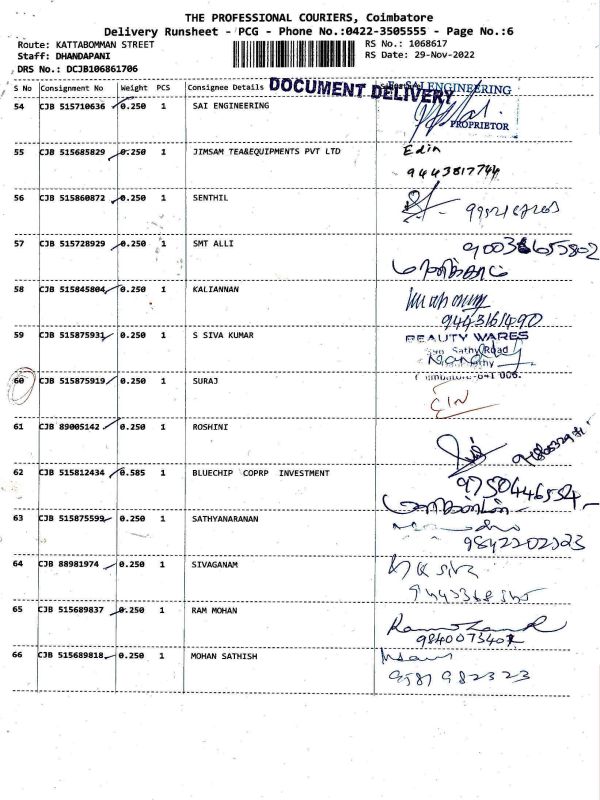 THE PROFESSIONAL COURIERS, Coimbatore
Delivery Runsheet - PCG - Phone No.:0422-3505555 - Page No.:6
Route: KATTABOMMAN STREET RS No.: 1068617
Staff: DHANDAPANI RS Date: 29-Nov-2022
DRS No.: DCJB106861706
S No Consignment No Weight PCS Consignee Details DOCUMENT DELIVERY For SAI ENGINEERING
54 CJB 515710636 0.250 1 SAI ENGINEERING
PROPRIETOR
55 CJB 515685829 0.250 1 JIMSAM TEA&EQUIPMENTS PVT LTD Edin
9443817744
56 CJB 515860872 0.250 1 SENTHIL
57 CJB 515728929 0.250 1 SMT ALLI
58 CJB 515845804 0.250 1 KALIANNAN
9443161490
59 CJB 515875931 0.250 1 S SIVA KUMAR BEAUTY WARES
Sathy Road
60 CJB 515875919 0.250 1 SURAJ Coimbatore-641 006.
61 CJB 89005142 0.250 1 ROSHINI
62 CJB 515812434 0.585 1 BLUECHIP COPRP INVESTMENT
9750446554
63 CJB 515875599 0.250 1 SATHYANARANAN
9842202223
64 CJB 88981974 0.250 1 SIVAGANAM
65 CJB 515689837 0.250 1 RAM MOHAN
9840073407
66 CJB 515689818 0.250 1 MOHAN SATHISH
9587982323